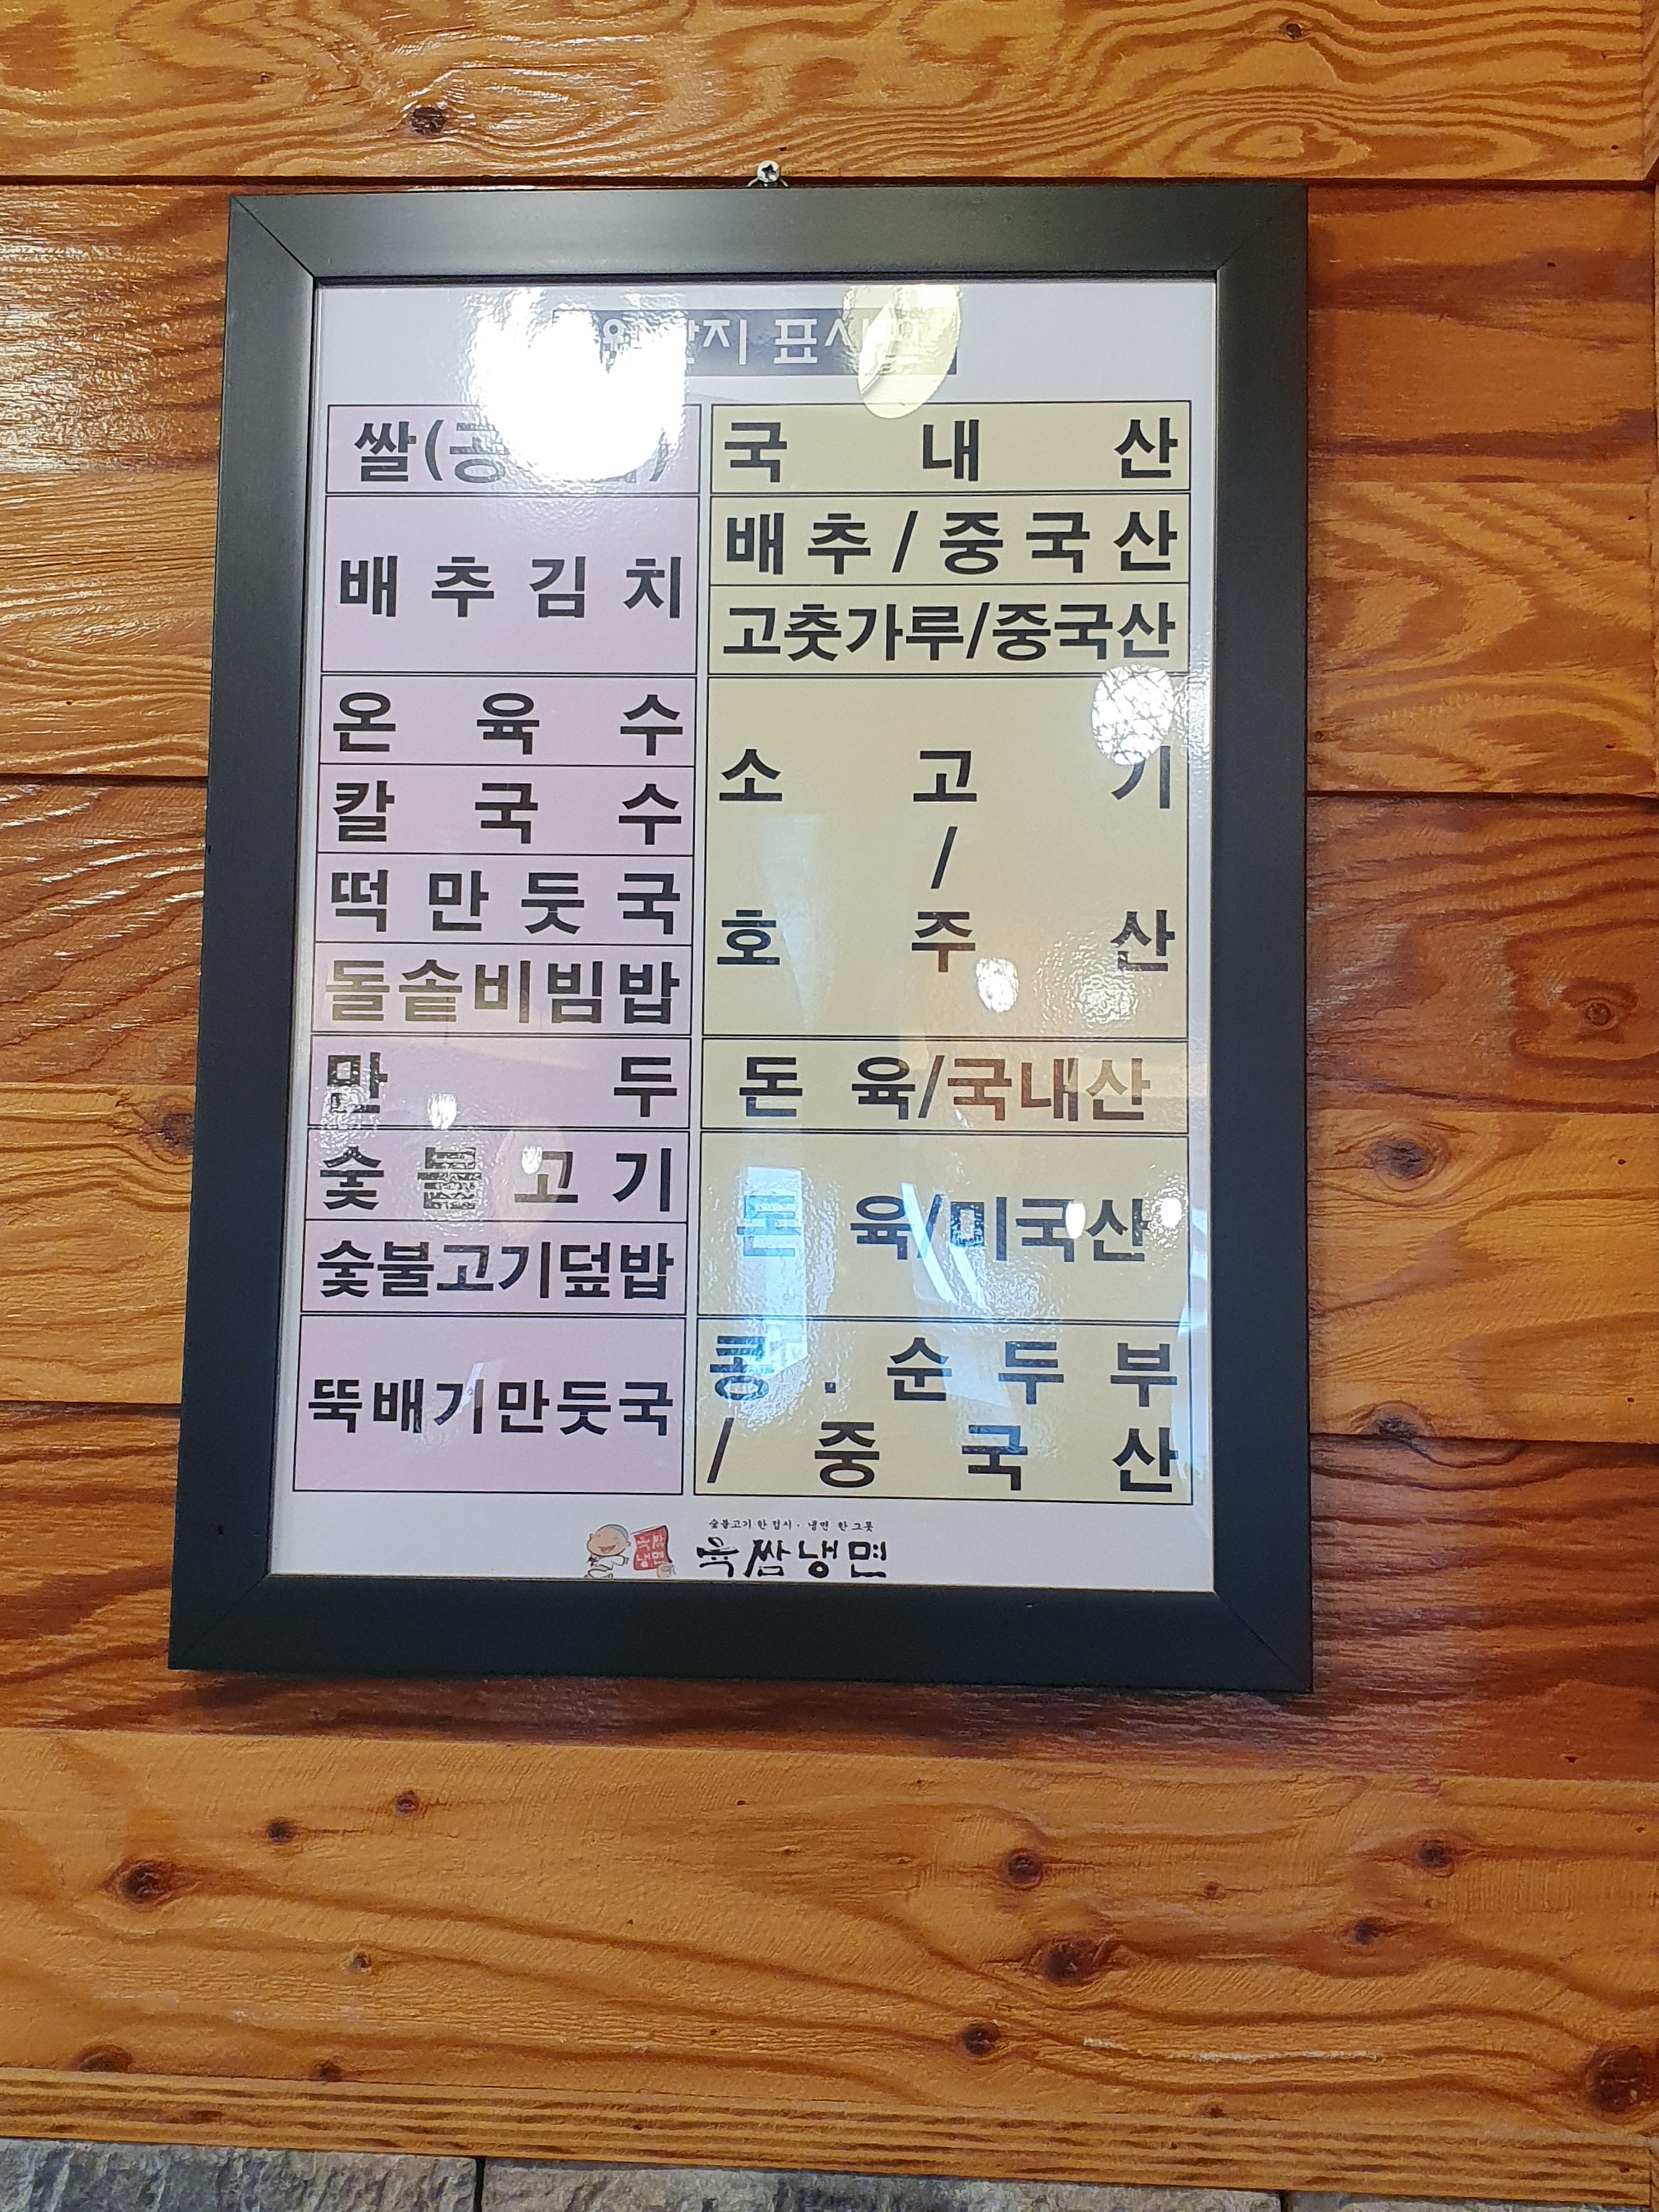 표
쌀
국 내 산
배 추 김 치
배 추 / 중 국 산
고춧가루/중국산
온 육 수
칼 국 수
떡 만 둣 국
돌솥비빔밥
소 고 기
/
호 주 산
만 두
돈 육/국내산
숯 불 고 기
숯불고기덮밥
돈 육/미국산
뚝배기만둣국
콩 . 순 두 부
/ 중 국 산
숯불고기 한 접시 · 냉면 한 그릇
육쌈냉면
육쌈
냉면